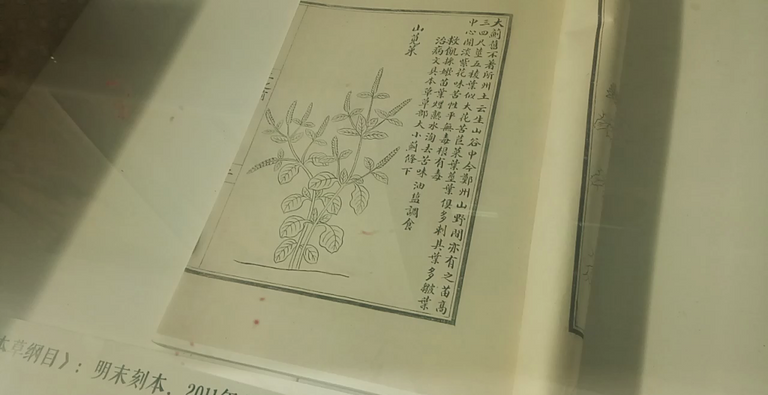 大薊舊不著所出州土云生山谷中今鄭州山野間亦有之苗高
三四尺莖五稜葉似大花苦苣菜葉莖葉俱多刺其葉多皺葉
中心開淡紫花味苦性平無毒根有毒
救飢採嫩苗葉煠熟水淘去苦味油鹽調食
治病文具本草草部大小薊條下
山莧菜
本草纲目》:明末刻本,2011年